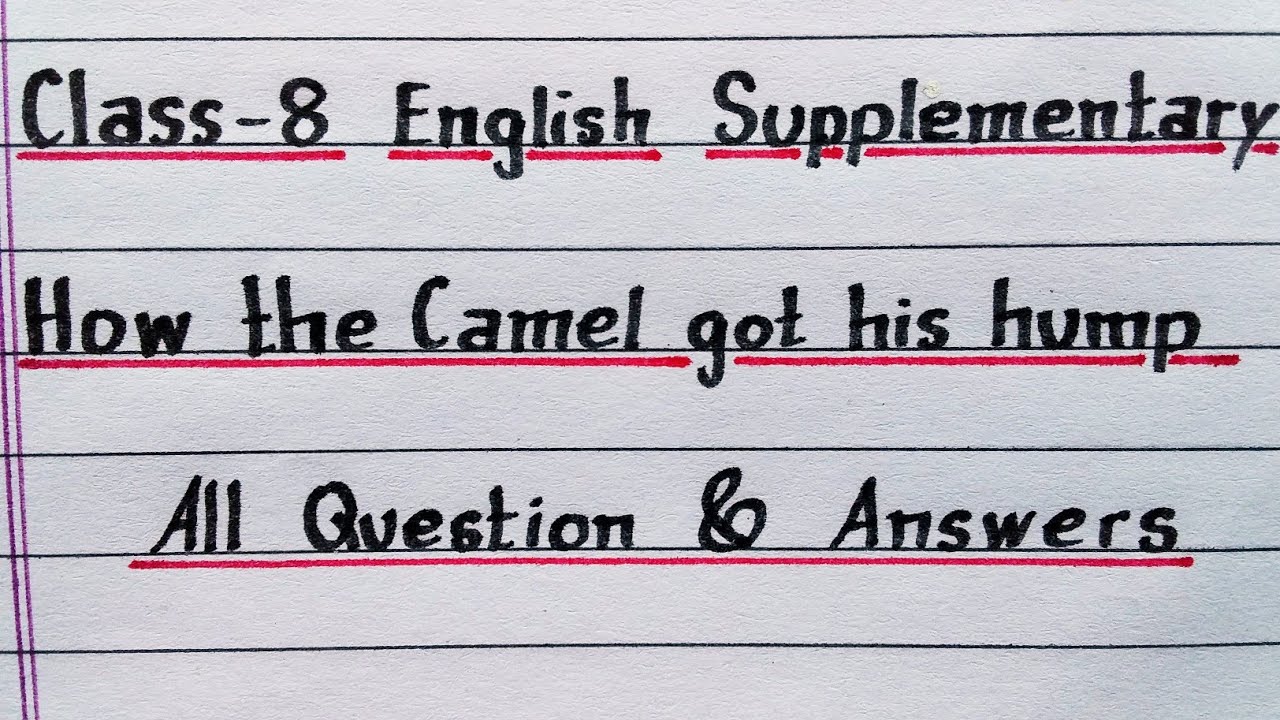 Class-8 English Supplementary
How the Camel got his hump
All Question & Answers